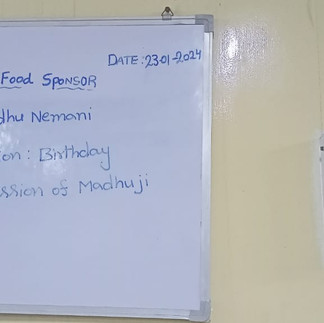 DATE: 23-01-2024
Food SPONSOR
dhu Nemani
on: Birthday
ssion of Madhuji